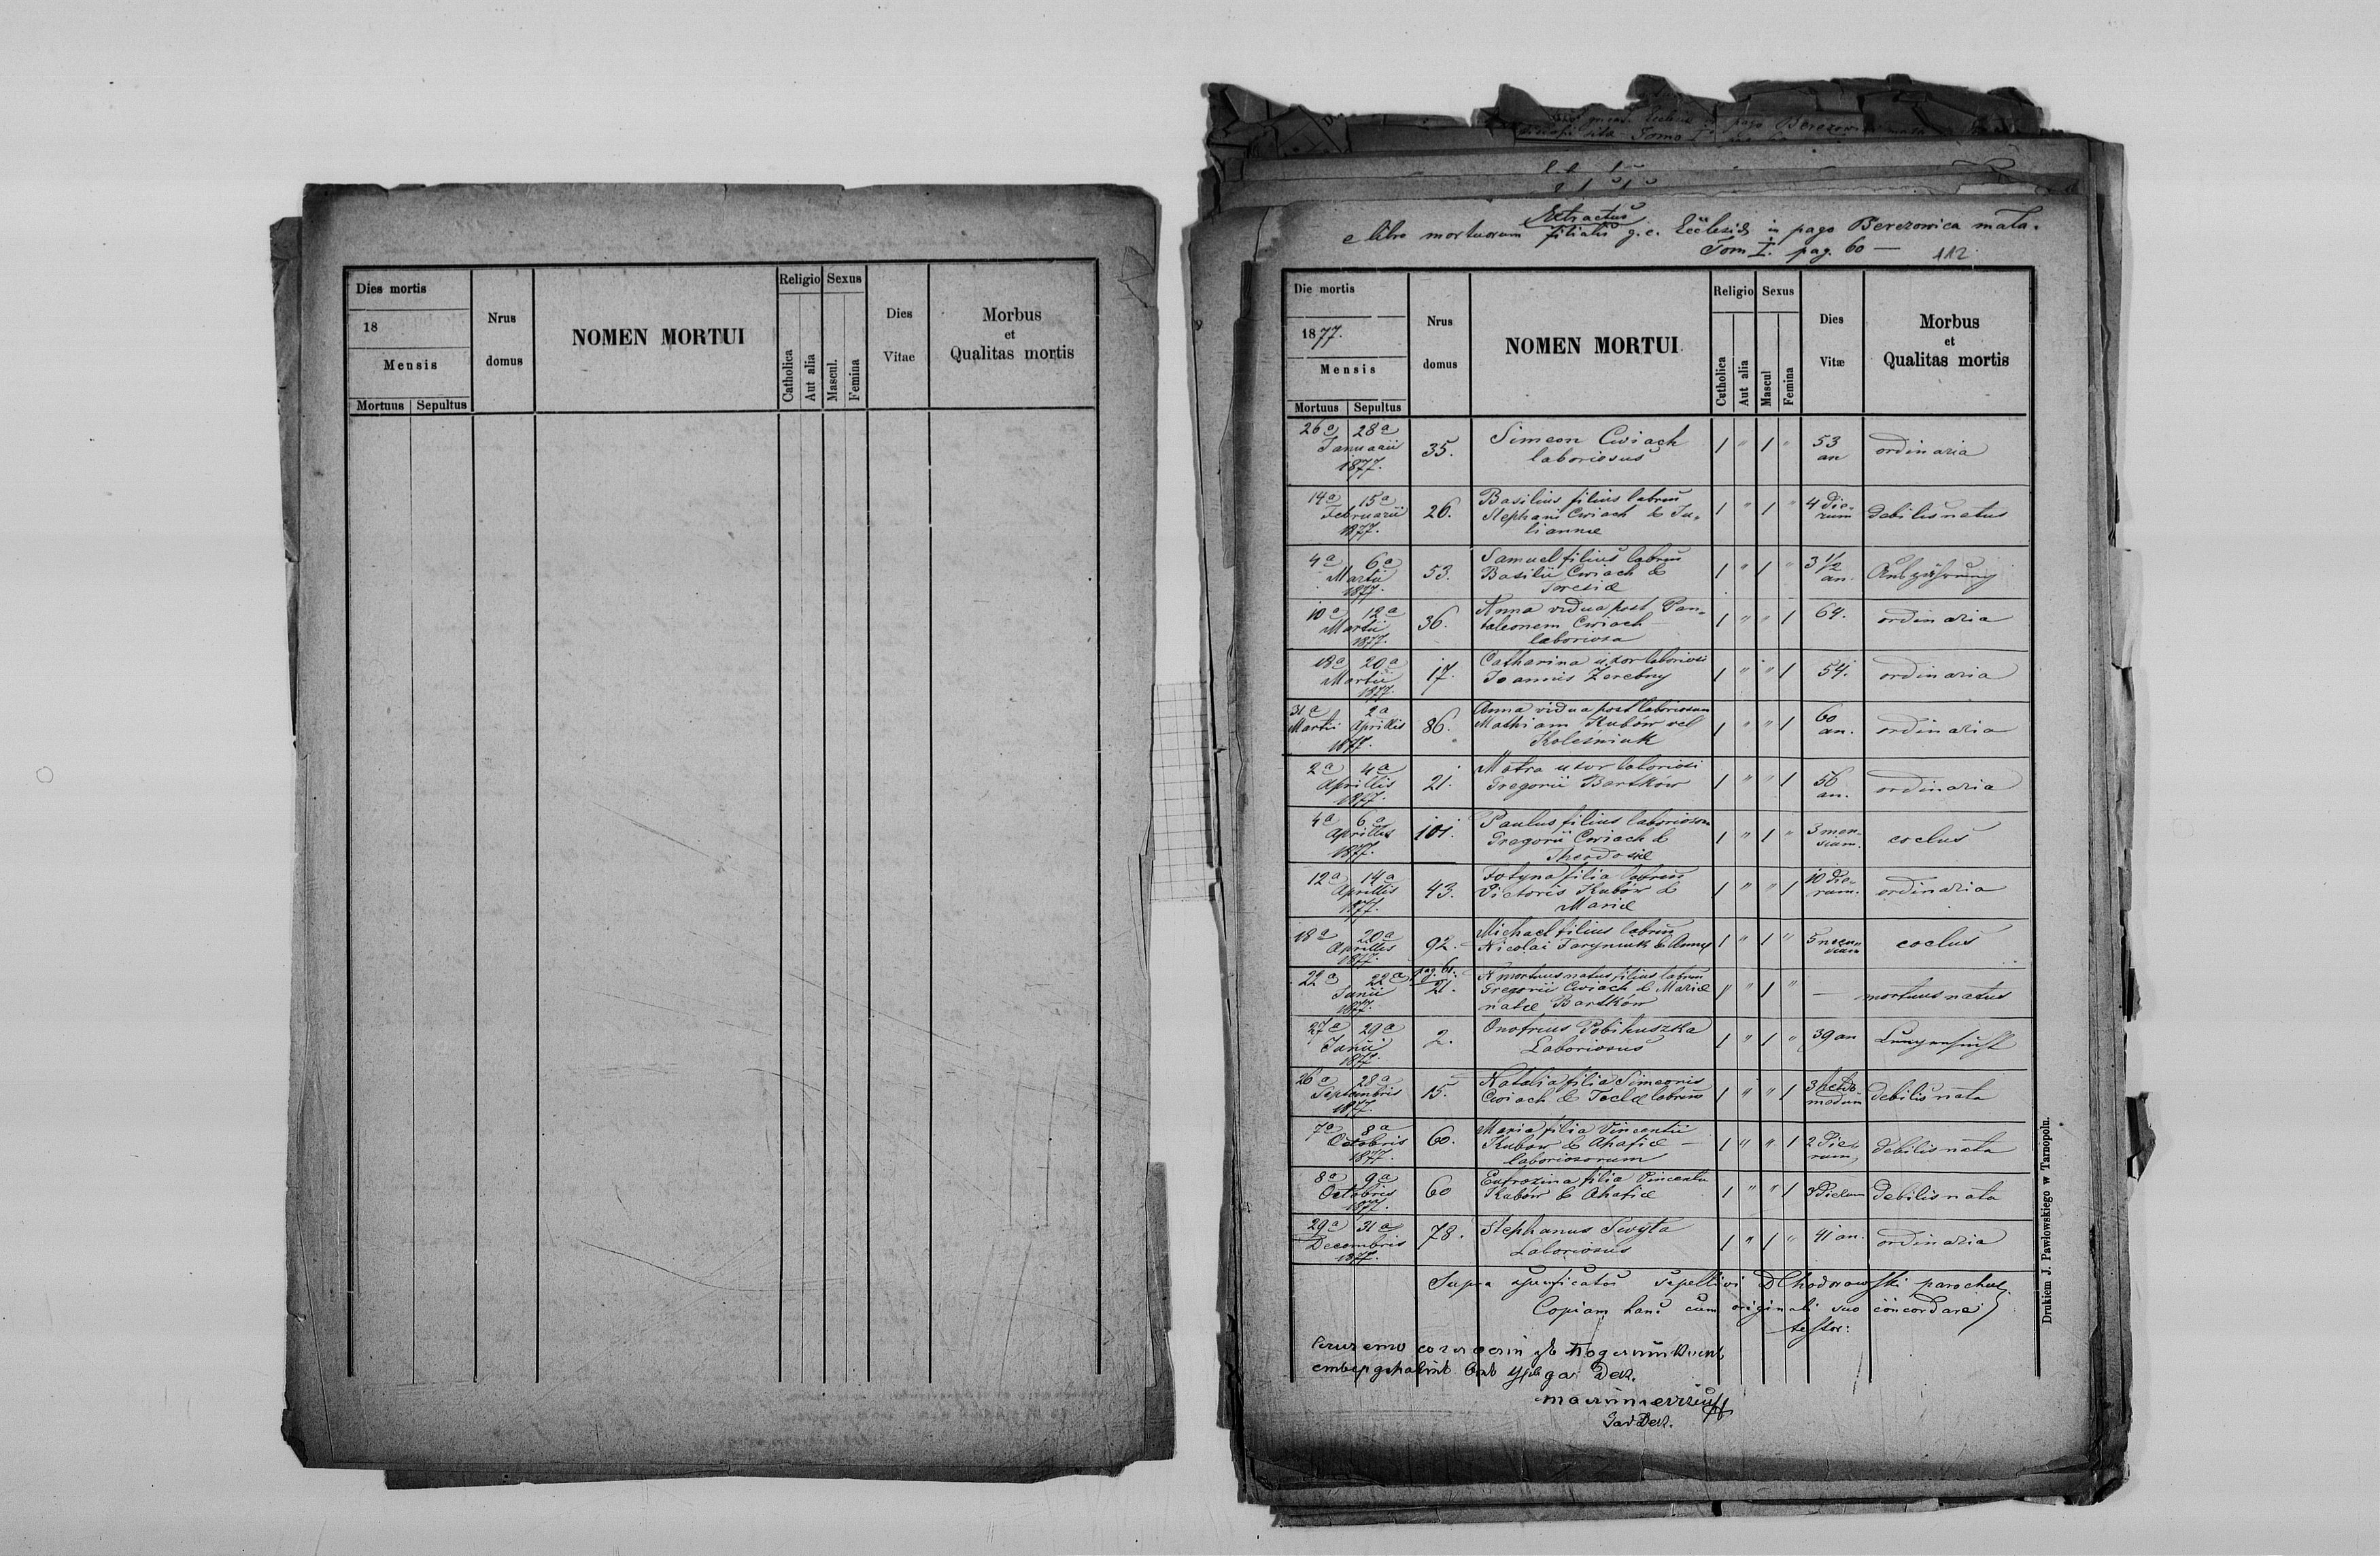 Dies mortis
18
Mensis
Mortuus Sepultus
Nrus
domus
NOMEN MORTUI
Religio Sexus
Catholica
Aut alia
Mascul.
Femina
Dies
Vitae
Morbus
et
Qualitas mortis
Extractus
e libro mortuorum filialis g. c. Ecclesiæ in pago Berezowica mala.
Tom I. pag. 60 —
112
Die mortis
1877.
Mensis
Mortuus Sepultus
Nrus
domus
NOMEN MORTUI
Religio Sexus
Catholica
Aut alia
Mascul
Femina
Dies
Vitæ
Morbus
et
Qualitas mortis
26a 28a
Januarii
1877.
35.
Simeon Cwiach
laboriosus
1 " 1 "
53
an
ordinaria
14a 15a
Februarii
1877.
26.
Basilius filius labrum
Stephani Cwiach & Ju-
liannæ
1 " 1 "
4 die-
rum
debilis natus
4a 6a
Martii
1877.
53.
Samuel filius labrum
Basilii Cwiach &
1 " 1 "
3 1/2
an.
Auszehrung
10a 12a
Martii
1877.
36.
Anna vidua post Pan-
taleonem Cwiach
laboriosa
1 " " 1
64.
ordinaria
18a 20a
Martii
1877.
17.
Catharina uxor laboriosi
Joannis Zerebny
1 " " 1
54.
ordinaria
31a 2a
Martii Aprillis
1877.
86.
Anna vidua post laboriosum
Mathiam Kubów vel
Kolesniuk
1 " " 1
60
an.
ordinaria
2a 4a
Aprillis
1877.
21.
Motra uxor laboriosi
Gregorii Bartków
1 " " 1
56
an.
ordinaria
4a 6a
Aprillis
1877.
101.
Paulus filius laboriosorum
Gregorii Cwiach &
Theodosiæ
1 " 1 "
3 men-
sium.
coclus
12a 14a
Aprillis
1877.
43.
Fotyna filia labrum
Victoris Kubów &
Mariæ
1 " " 1
10 die-
rum.
ordinaria
18a 20a
Aprillis
1877.
92.
Michael filius labrum
Nicolai Taryniuk & Annæ
1 " 1 "
5 men-
sium
coclus
22a 22a
Junii
1877.
pag. 61.
21.
mortuus natus filius labrum
Gregorii Cwiach & Mariæ
natæ Bartków
1 " 1 "
—
mortuus natus
27a 29a
Junii
1877.
2.
Onofrius Pobihuszka
Laboriosus
1 " 1 "
39 an
Lungensucht
26a 28a
Septembris
1877.
15.
Natalia filia Simeonis
Cwiach & Teclæ labrum
1 " " 1
3 hebdo-
madum
debilis nata
7a 8a
Octobris
1877.
60.
Maria filia Vincentii
Kubów & Ahafiæ —
laboriosorum
1 " " 1
2 die-
rum
debilis nata
8a 9a
Octobris
1877.
60
Eufrozina filia Vincentii
Kubów & Ahafiæ
1 " " 1
3 dierum
debilis nata
29a 31a
Decembris
1877.
78.
Stephanus
Laboriosus
1 " 1 "
41 an.
ordinaria
Supra sepellivi DChodorowski parochus.
Copiam hanc cum originali suo concordare
testor:
Drukiem J. Pawłowskiego w Tarnopolu.